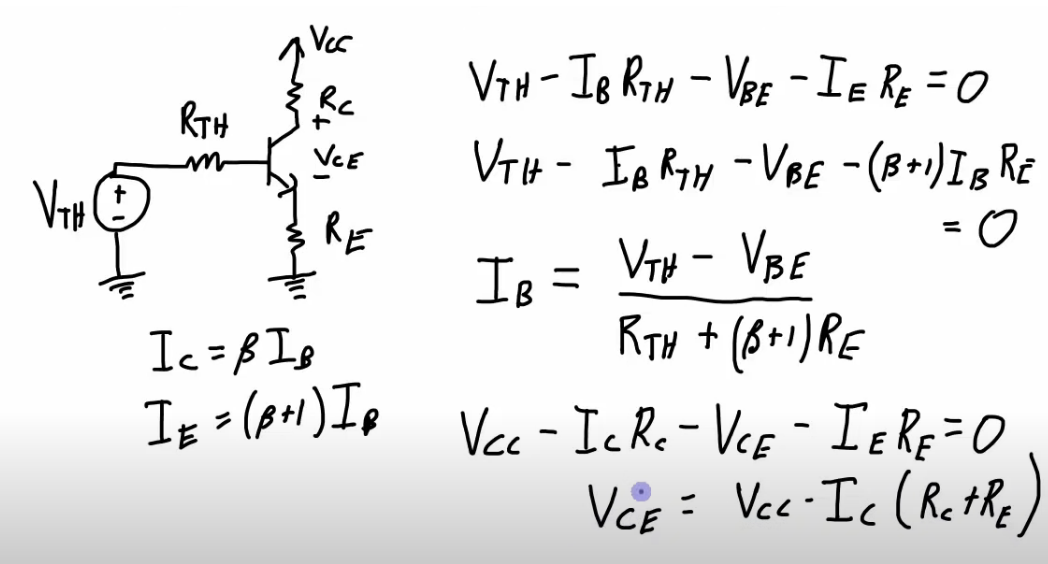 VCC
RC
+
RTH
VCE
-
VTH
+
-
RE
IC = β IB
IE = (β+1) IB
VTH - IB RTH - VBE - IE RE = 0
VTH - IB RTH - VBE - (β+1) IB RE
= 0
IB = VTH - VBE
RTH + (β+1) RE
VCC - IC RC - VCE - IE RE = 0
VCE = VCC - IC (RC + RE)